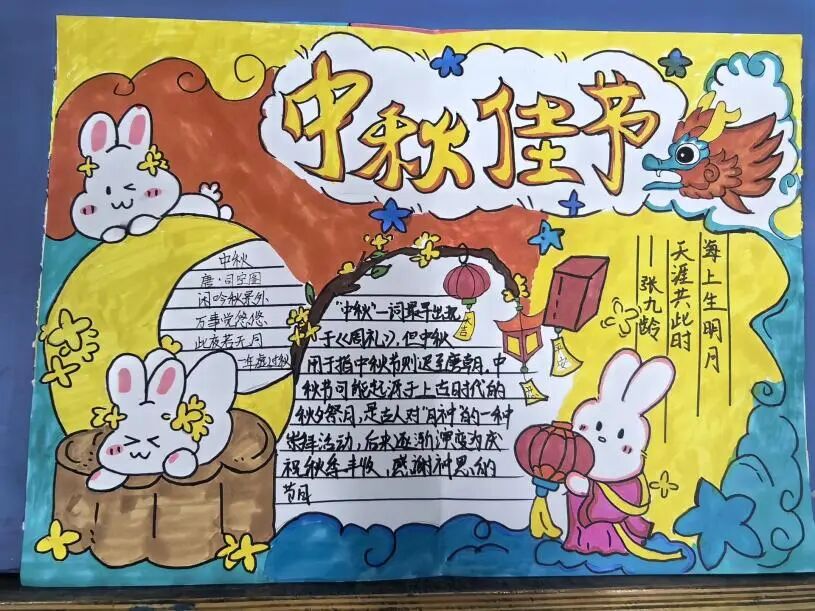 中秋佳节
中秋
唐·司空图
闲吟秋景外
万事觉悠悠
此夜若无月
一年虚过秋
"中秋"一词最早出现
于《周礼》,但中秋
用于指中秋节则迟至唐朝,中
秋节可能起源于上古时代的
秋夕祭月,是古人对"月神"的一种
崇拜活动,后来逐渐演变为庆
祝秋季丰收,感谢神恩的
节日
大吉
海上生明月
天涯共此时
——张九龄